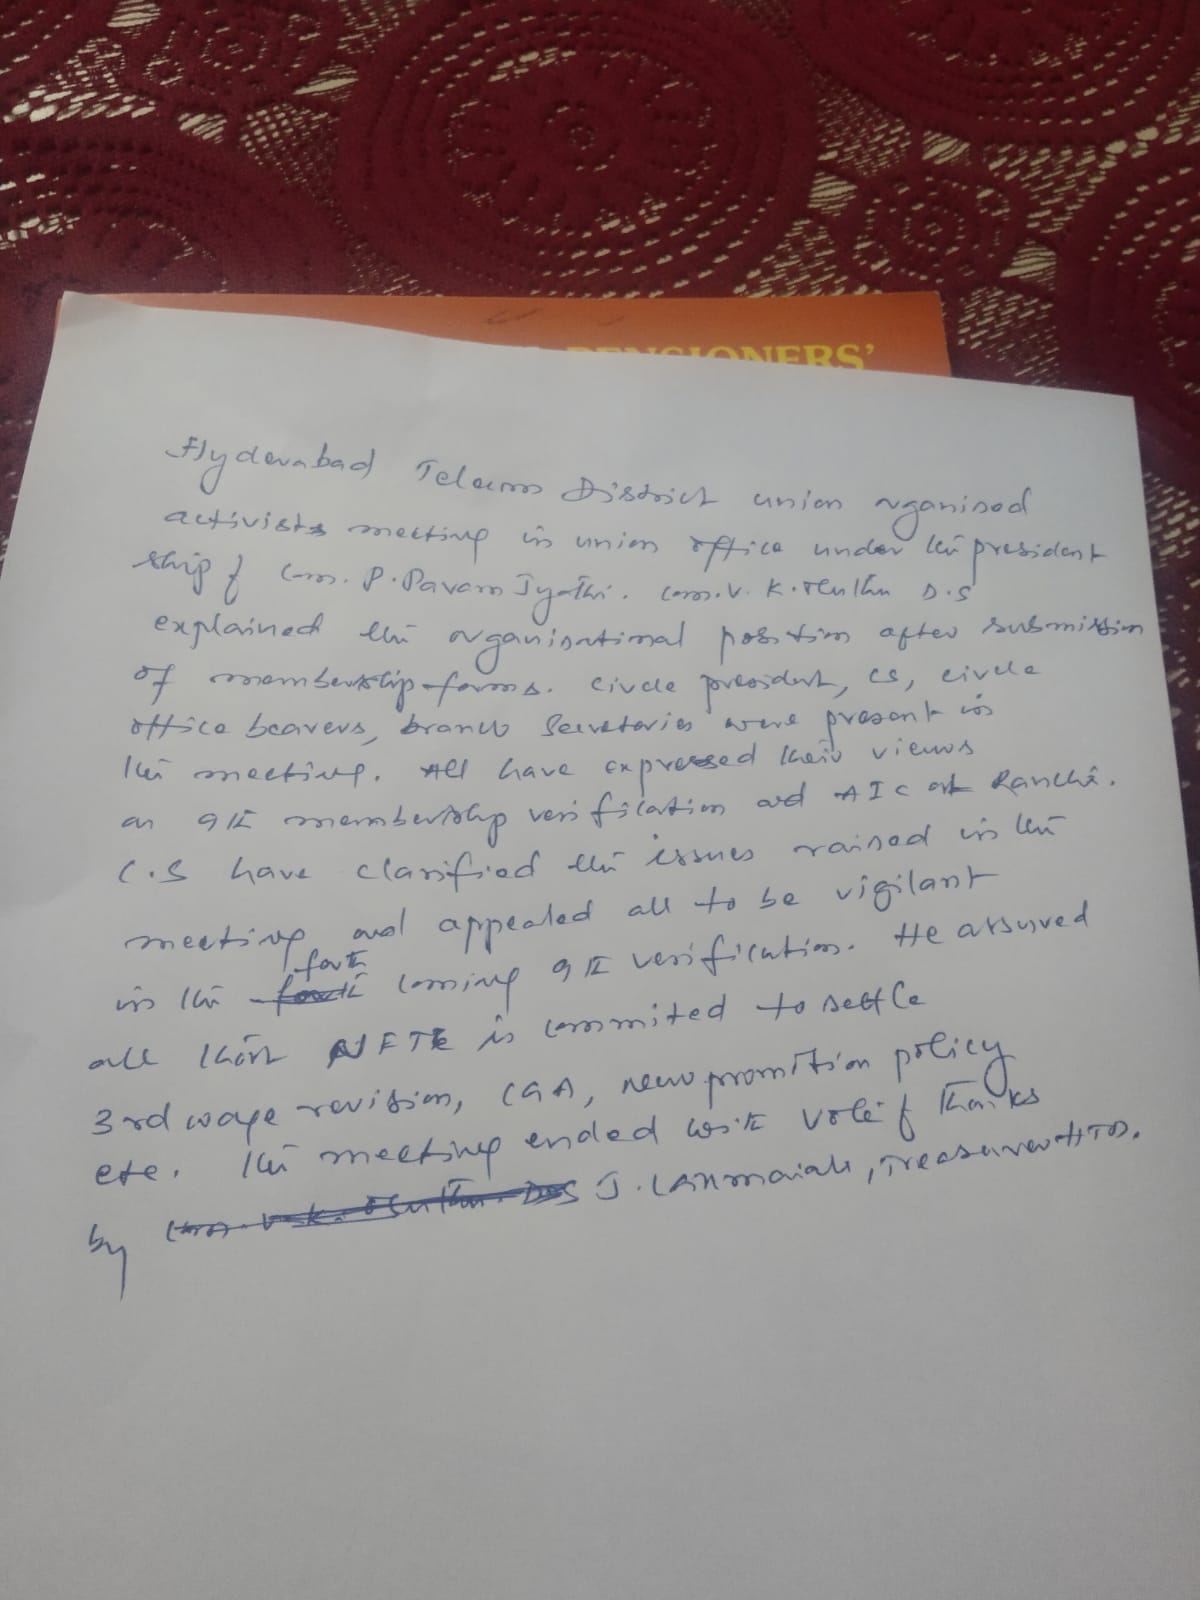 PENSIONERS'
Hyderabad Telecom District union organised
activists meeting in union office under the president
ship of Com. P. Pavam Jyothi. Com. V. K. D.S
explained the organisational position after submission
of membership forms. Circle president, CS, circle
office bearers, branch Secretaries were present in
the meeting. All have expressed their views
on 9th membership verification and AIC at Ranchi.
C.S have clarified the issues raised in the
meeting and appealed all to be vigilant
in the forth coming 9th verification. He assured
all that NFTE is commited to settle
3rd wage revision, CGA, new promotion policy
etc. The meeting ended with vote of thanks
by J. Laxmaiah, Treasurer HTD.